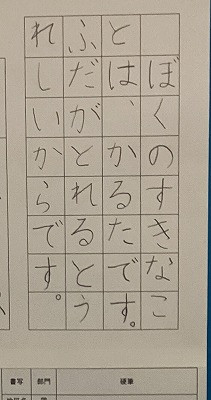 ぼくのすきなこ
とは、かるたです。
ふだが、とれるとう
れしいからです。
書写 部門 硬筆